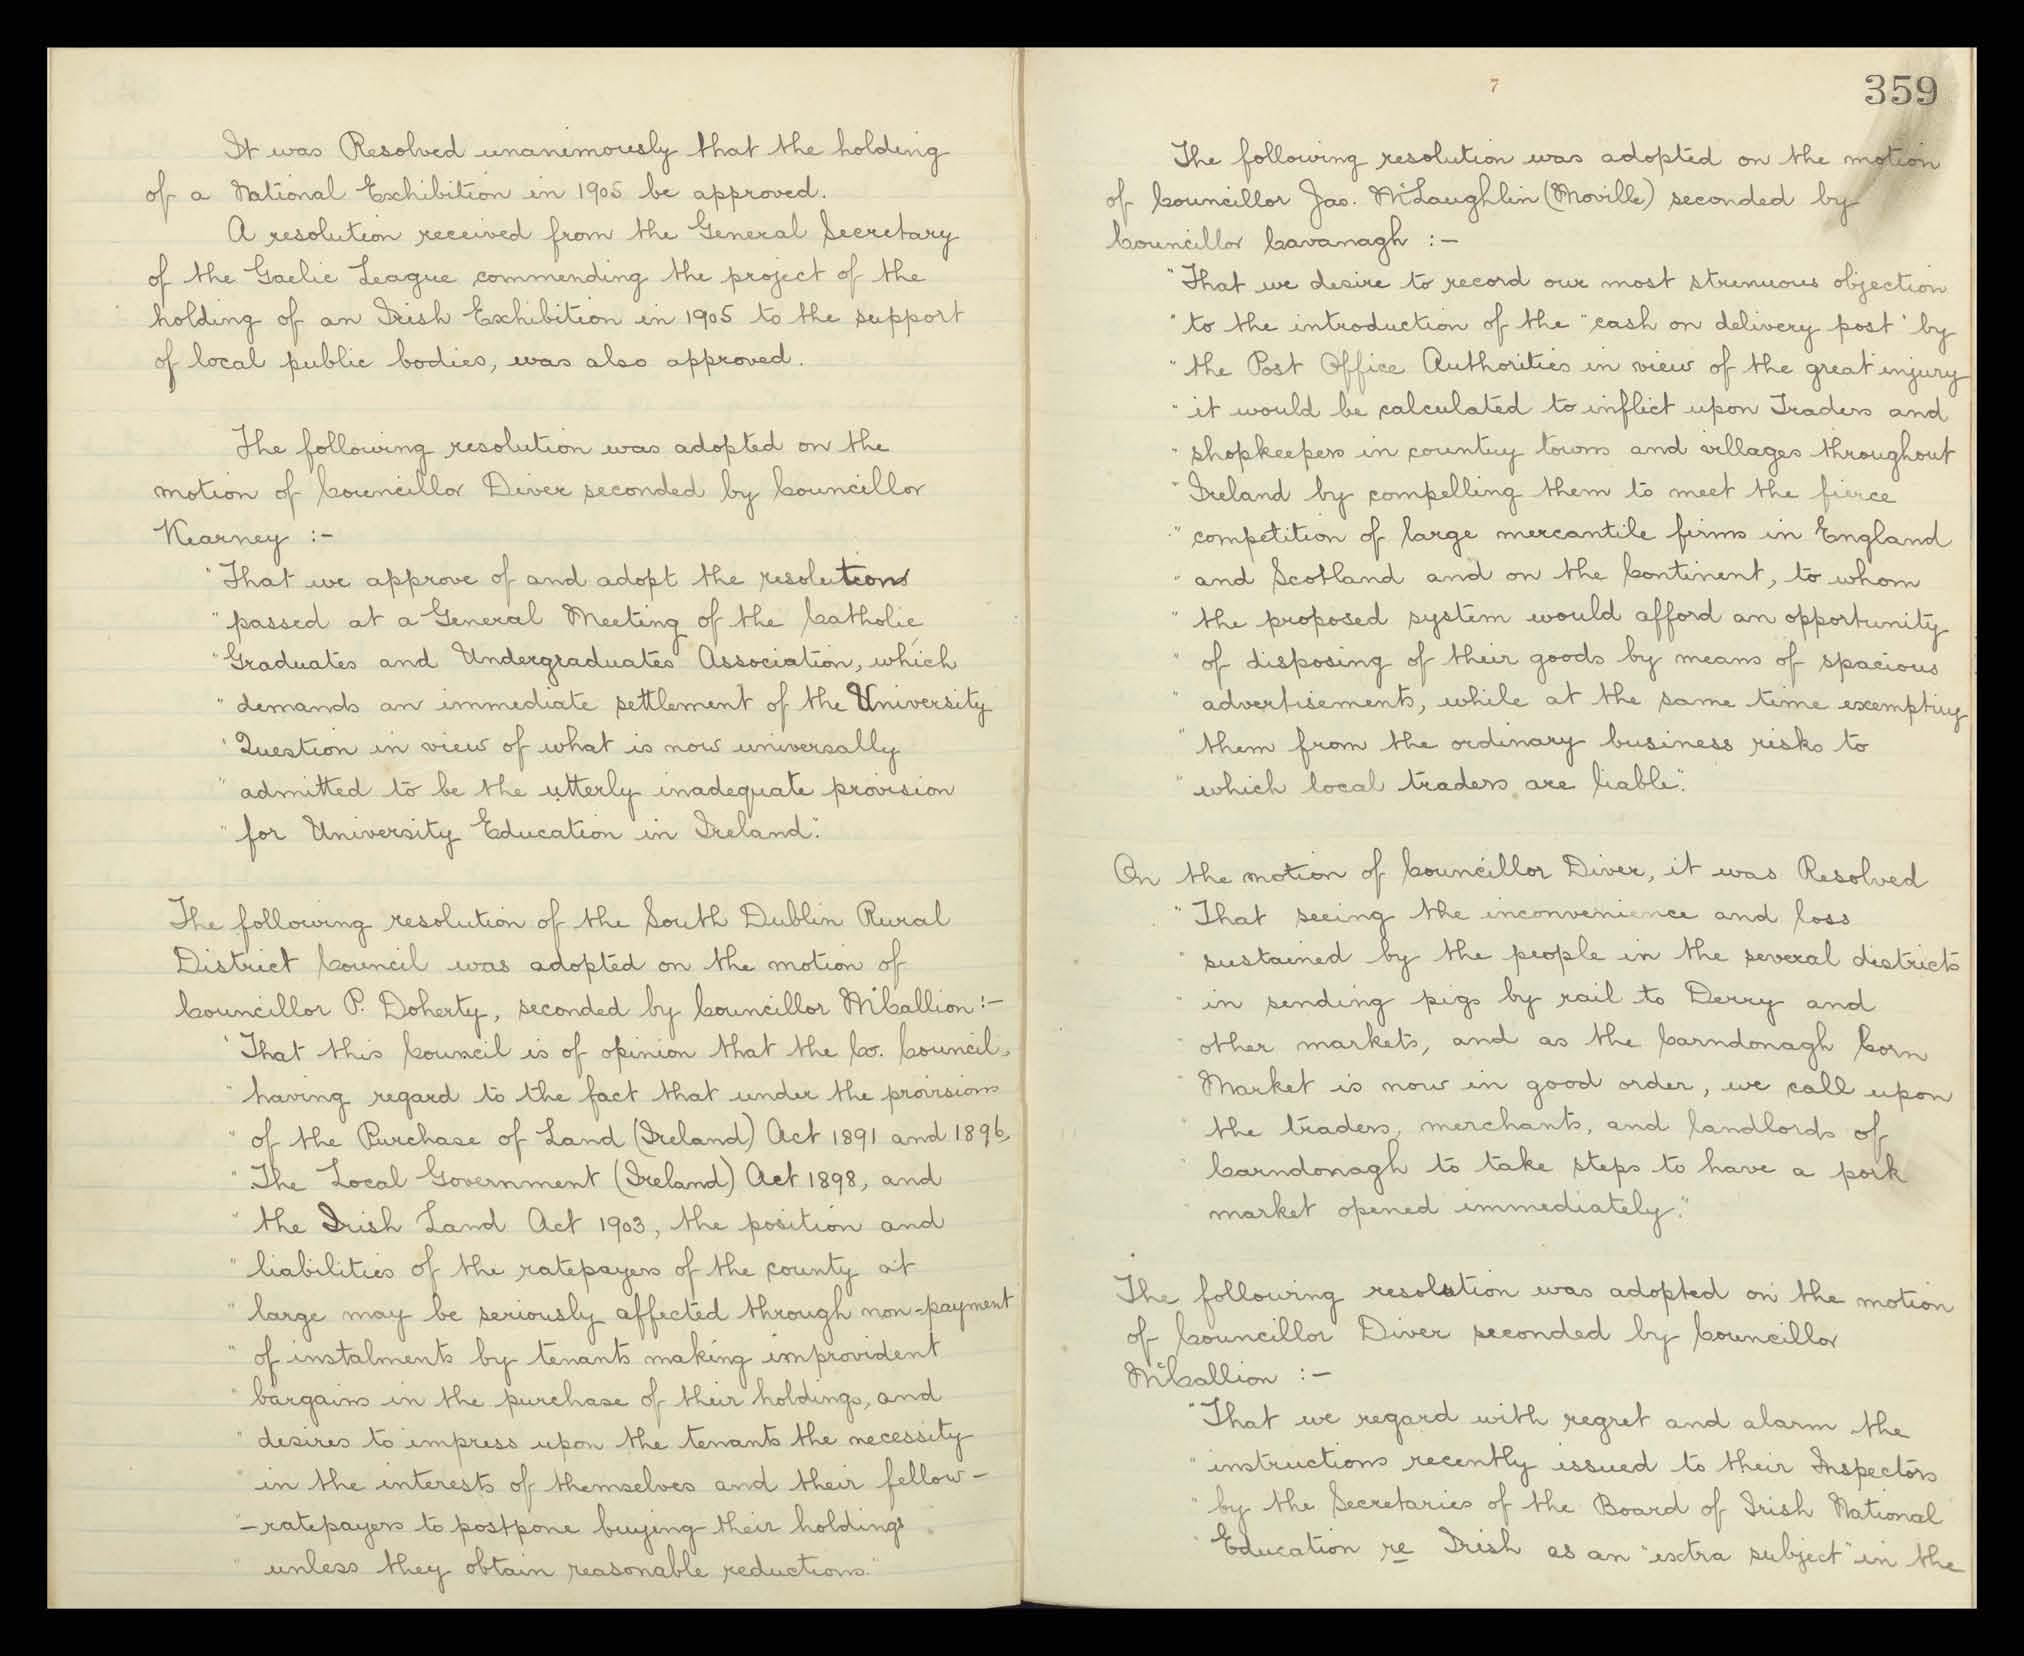 It was Resolved unanimously that the holding
of a National Exhibition in 1905 be approved.
A resolution received from the General Secretary
of the Gaelic League commending the project of the
holding of an Irish Exhibition in 1905 to the support
of local public bodies, was also approved.
The following resolution was adopted on the
motion of Councillor Diver seconded by Councillor
Kearney :-
"That we approve of and adopt the resolutions
" passed at a General Meeting of the Catholic
" Graduates and Undergraduates Association, which
" demands an immediate settlement of the University
" Question in view of what is now universally
" admitted to be the utterly inadequate provision
" for University Education in Ireland."
The following resolution of the South Dublin Rural
District Council was adopted on the motion of
Councillor P. Doherty, seconded by Councillor McCallion :-
"That this Council is of opinion that the Co. Council,
" having regard to the fact that under the provisions
" of the Purchase of Land (Ireland) Act 1891 and 1896,
" The Local Government (Ireland) Act 1898, and
" the Irish Land Act 1903, the position and
" liabilities of the ratepayers of the county at
" large may be seriously affected through non-payment
" of instalments by tenants making improvident
" bargains in the purchase of their holdings, and
" desires to impress upon the tenants the necessity
" in the interests of themselves and their fellow-
"-ratepayers to postpone buying their holdings
" unless they obtain reasonable reductions."
7
359
The following resolution was adopted on the motion
of Councillor Jas. McLaughlin (Moville) seconded by
Councillor Cavanagh :-
"That we desire to record our most strenuous objection
" to the introduction of the "cash on delivery post" by
" the Post Office Authorities in view of the great injury
" it would be calculated to inflict upon Traders and
" shopkeepers in country towns and villages throughout
" Ireland by compelling them to meet the fierce
" competition of large mercantile firms in England
" and Scotland and on the Continent, to whom
" the proposed system would afford an opportunity
" of disposing of their goods by means of spacious
" advertisements, while at the same time exempting
" them from the ordinary business risks to
" which local traders are liable."
On the motion of Councillor Diver, it was Resolved
"That seeing the inconvenience and loss
" sustained by the people in the several districts
" in sending pigs by rail to Derry and
" other markets, and as the Carndonagh Corn
" Market is now in good order, we call upon
" the traders, merchants, and landlords of
" Carndonagh to take steps to have a pork
" market opened immediately."
The following resolution was adopted on the motion
of Councillor Diver seconded by Councillor
McCallion :-
"That we regard with regret and alarm the
" instructions recently issued to their Inspectors
" by the Secretaries of the Board of Irish National
" Education re Irish as an "extra subject" in the